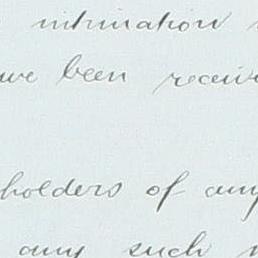 intimation
have been receiv
holders of any
any such